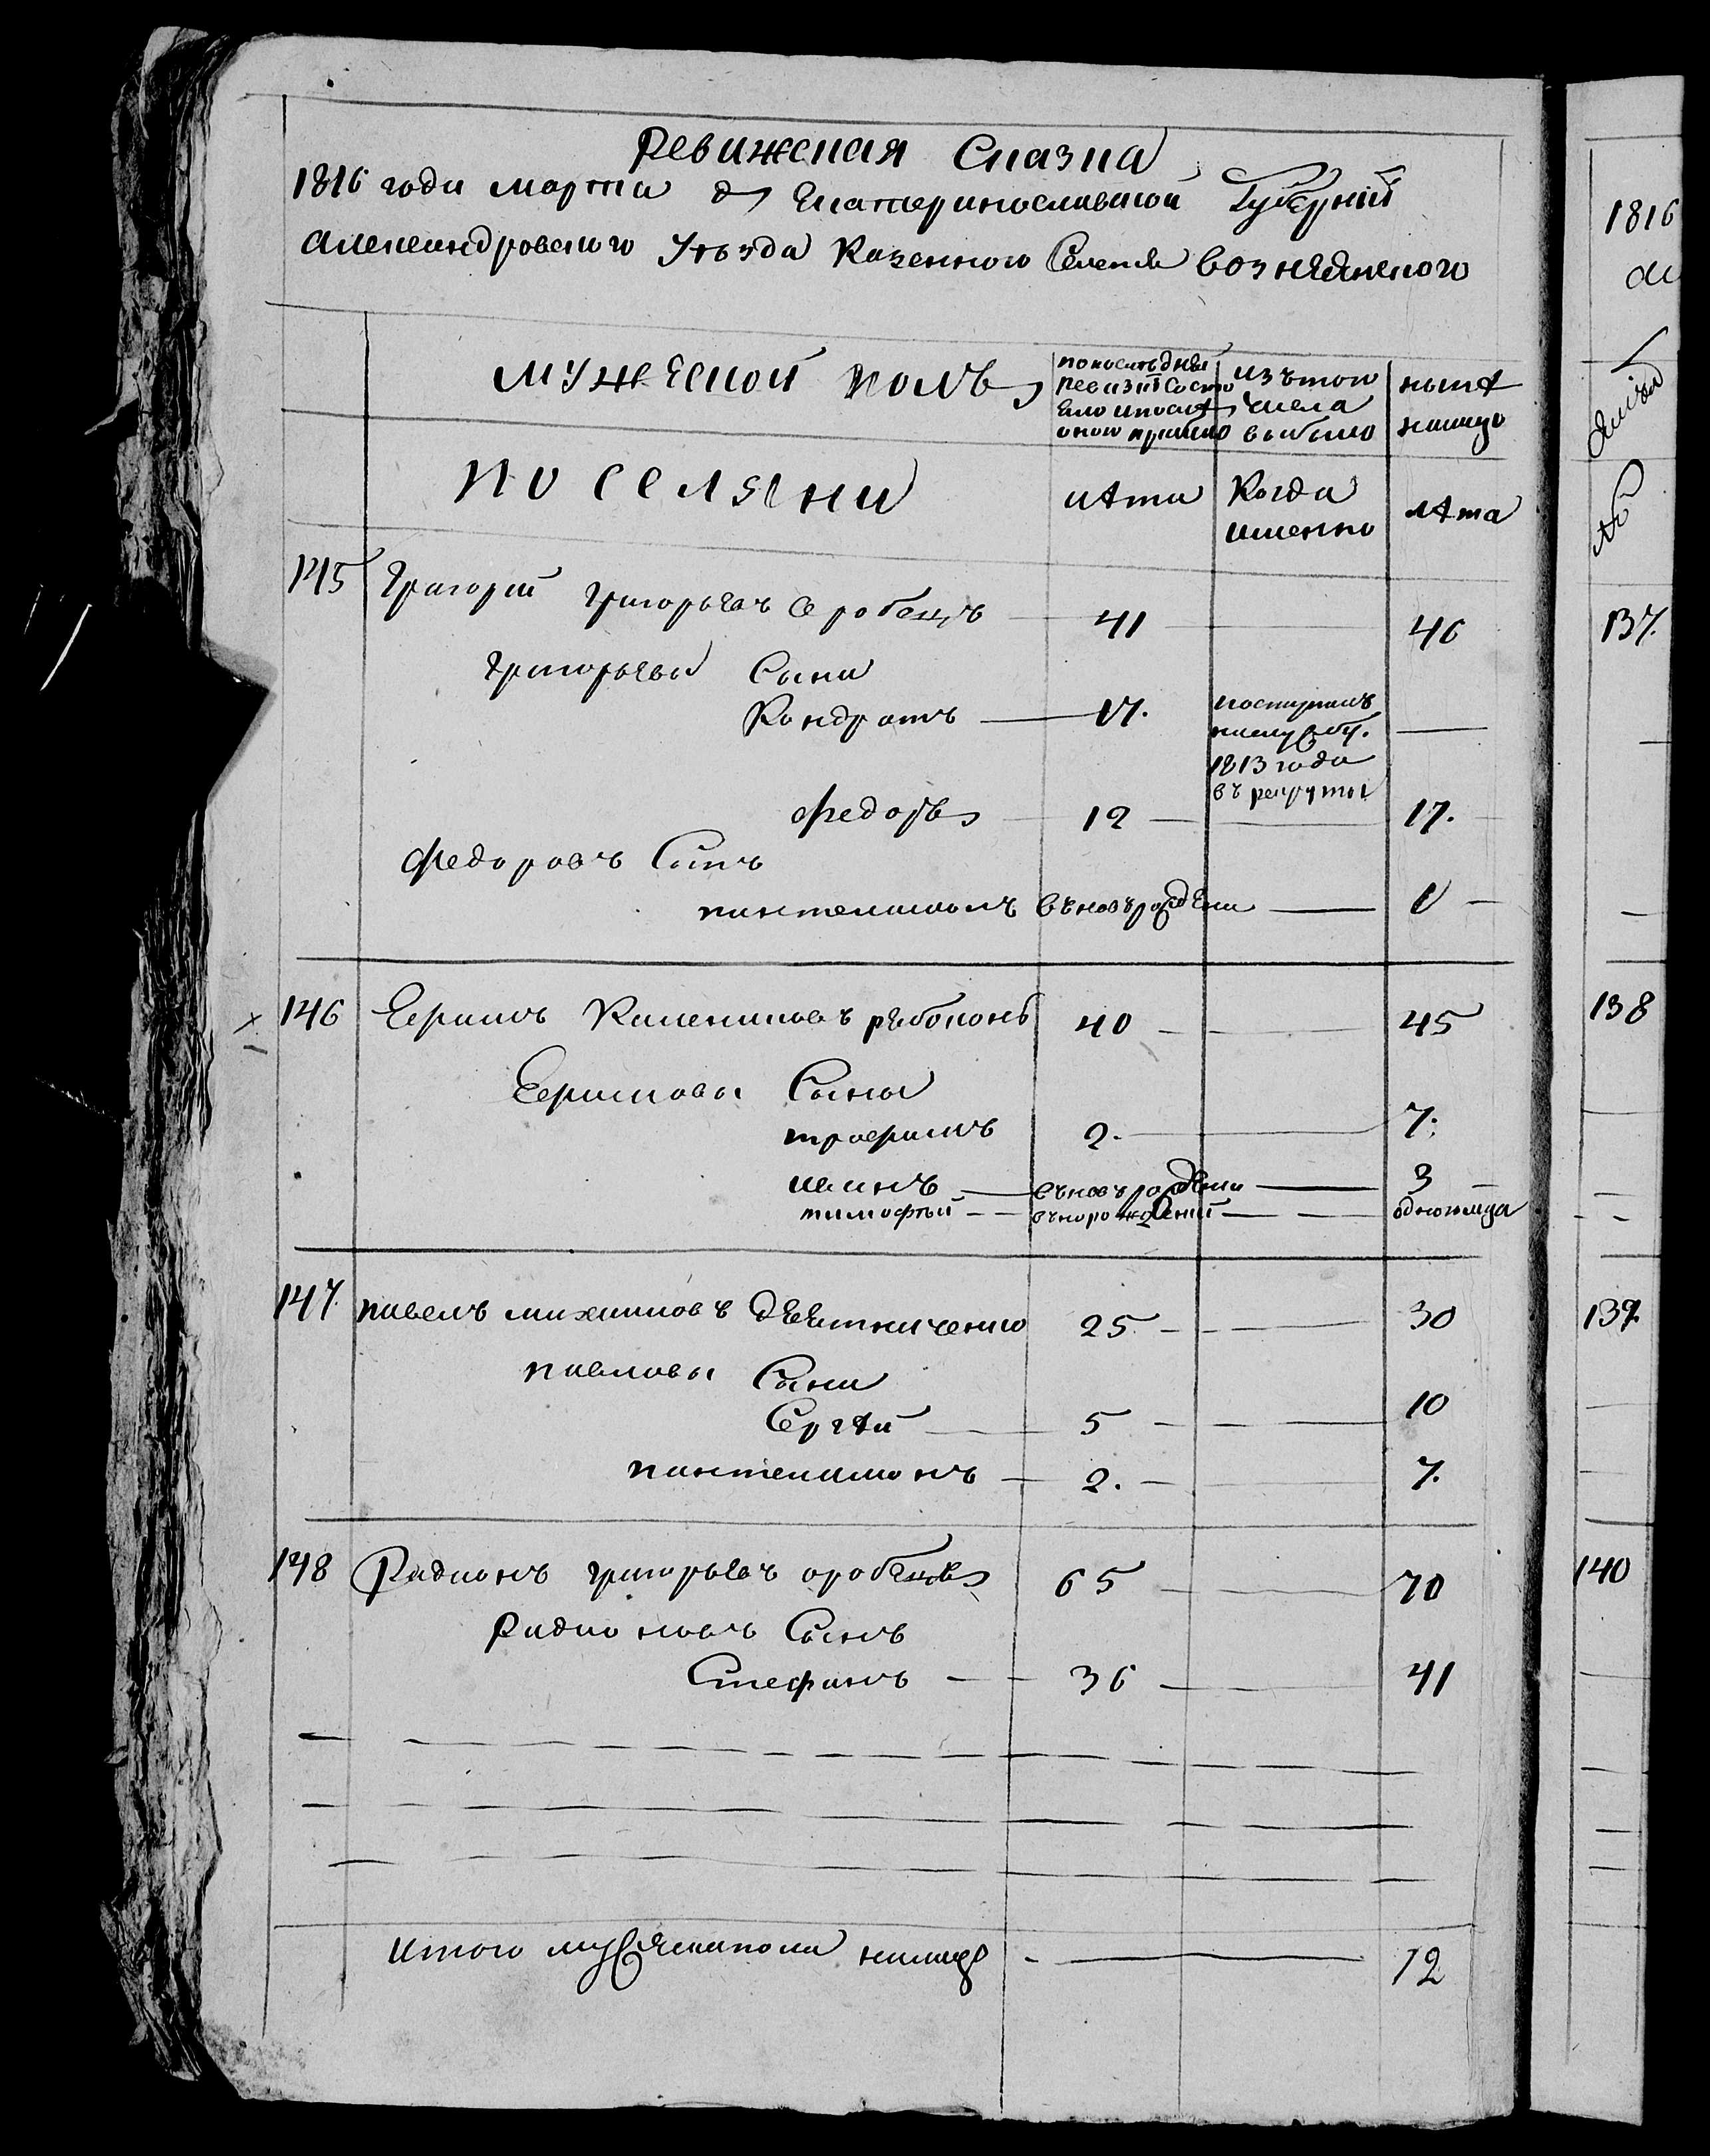 Ревижская Сказка
1816 года марта д Екатеринославской Губернии
Александровского Уѣзда Казенного Селения вознесенского
мужеской полъ
по последней ревизии состояло и после оной прибыло
изътого числа выбыло
нынѣ налицо
поселяни
лѣта
Когда именно
лѣта
145 Григорий григорьевъ Серобецъ 41 46
григорьевы Сыни
Кондратъ 17. поступилъ наслужбу 1813 года въ рекруты
федоръ 12 17.
федоровъ Сынъ
пантелимонъ вновърождени
146 Ефимъ рыбоконь 40 45
Ефимовы Сыны
трофимъ 2. 7.
иванъ вновърождени 3
тимофѣй вноро­жденй
147. павелъ михайловъ 25 30
павловы Сыни
Сергѣй 5 10
пантелимонъ 2. 7.
148 Радионъ григорьевъ 65 70
Радионовъ Сынъ
Стефанъ 36 41
итого мужескаполи налицо 12
1816
137.
138
139
140